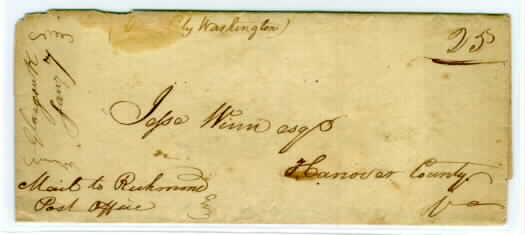 by Washington)
25
Jesse Winn esqr
Hanover County
Va
Mail to Richmond
Post Office
Glasgow K
Jany 7